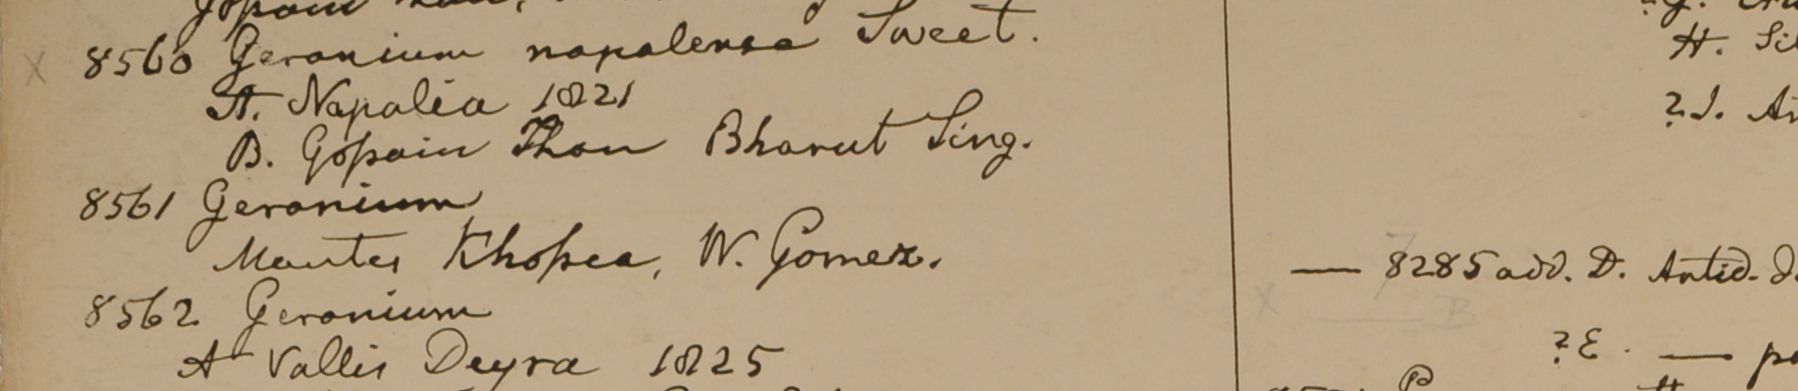 8560 Geranium napalense Sweet.
A. Napalia 1821
B. Gopain Than Bharut Sing.
8561 Geranium
Montes Khopea, W. Gomez.
8562 Geranium
A Vallis Deyra 1825
H.
? I.
— 8285 add. D. Antid.
? E. —